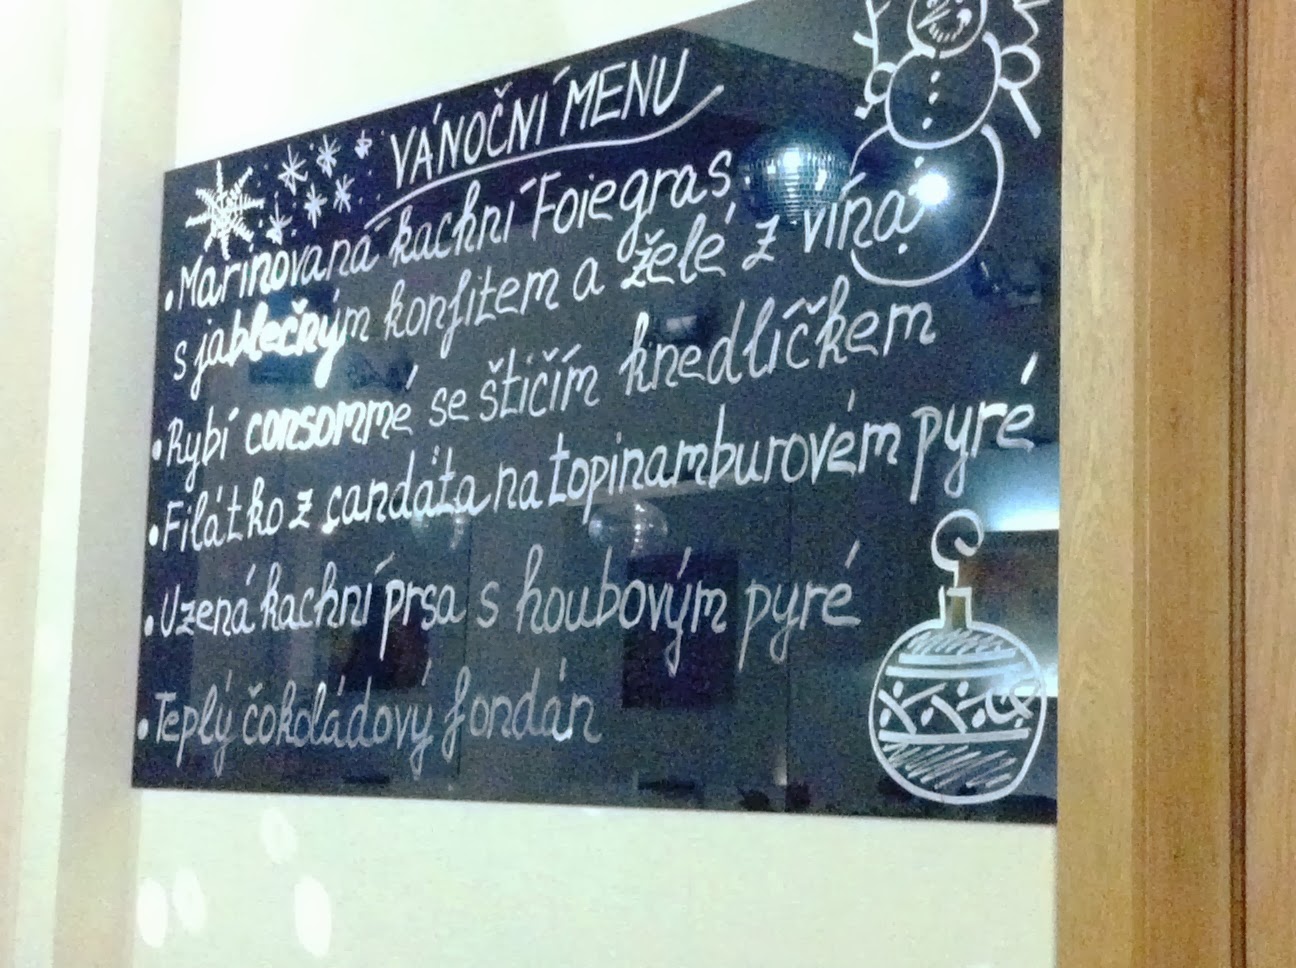 VÁNOČNÍ MENU
• Marinovaná kachní Foiegras
s jablečným konfitem a želé z vína
• Rybí consommé se štičím knedlíčkem
• Filátko z candáta na topinamburovém pyré
• Uzená kachní prsa s houbovým pyré
• Teplý čokoládový fondán